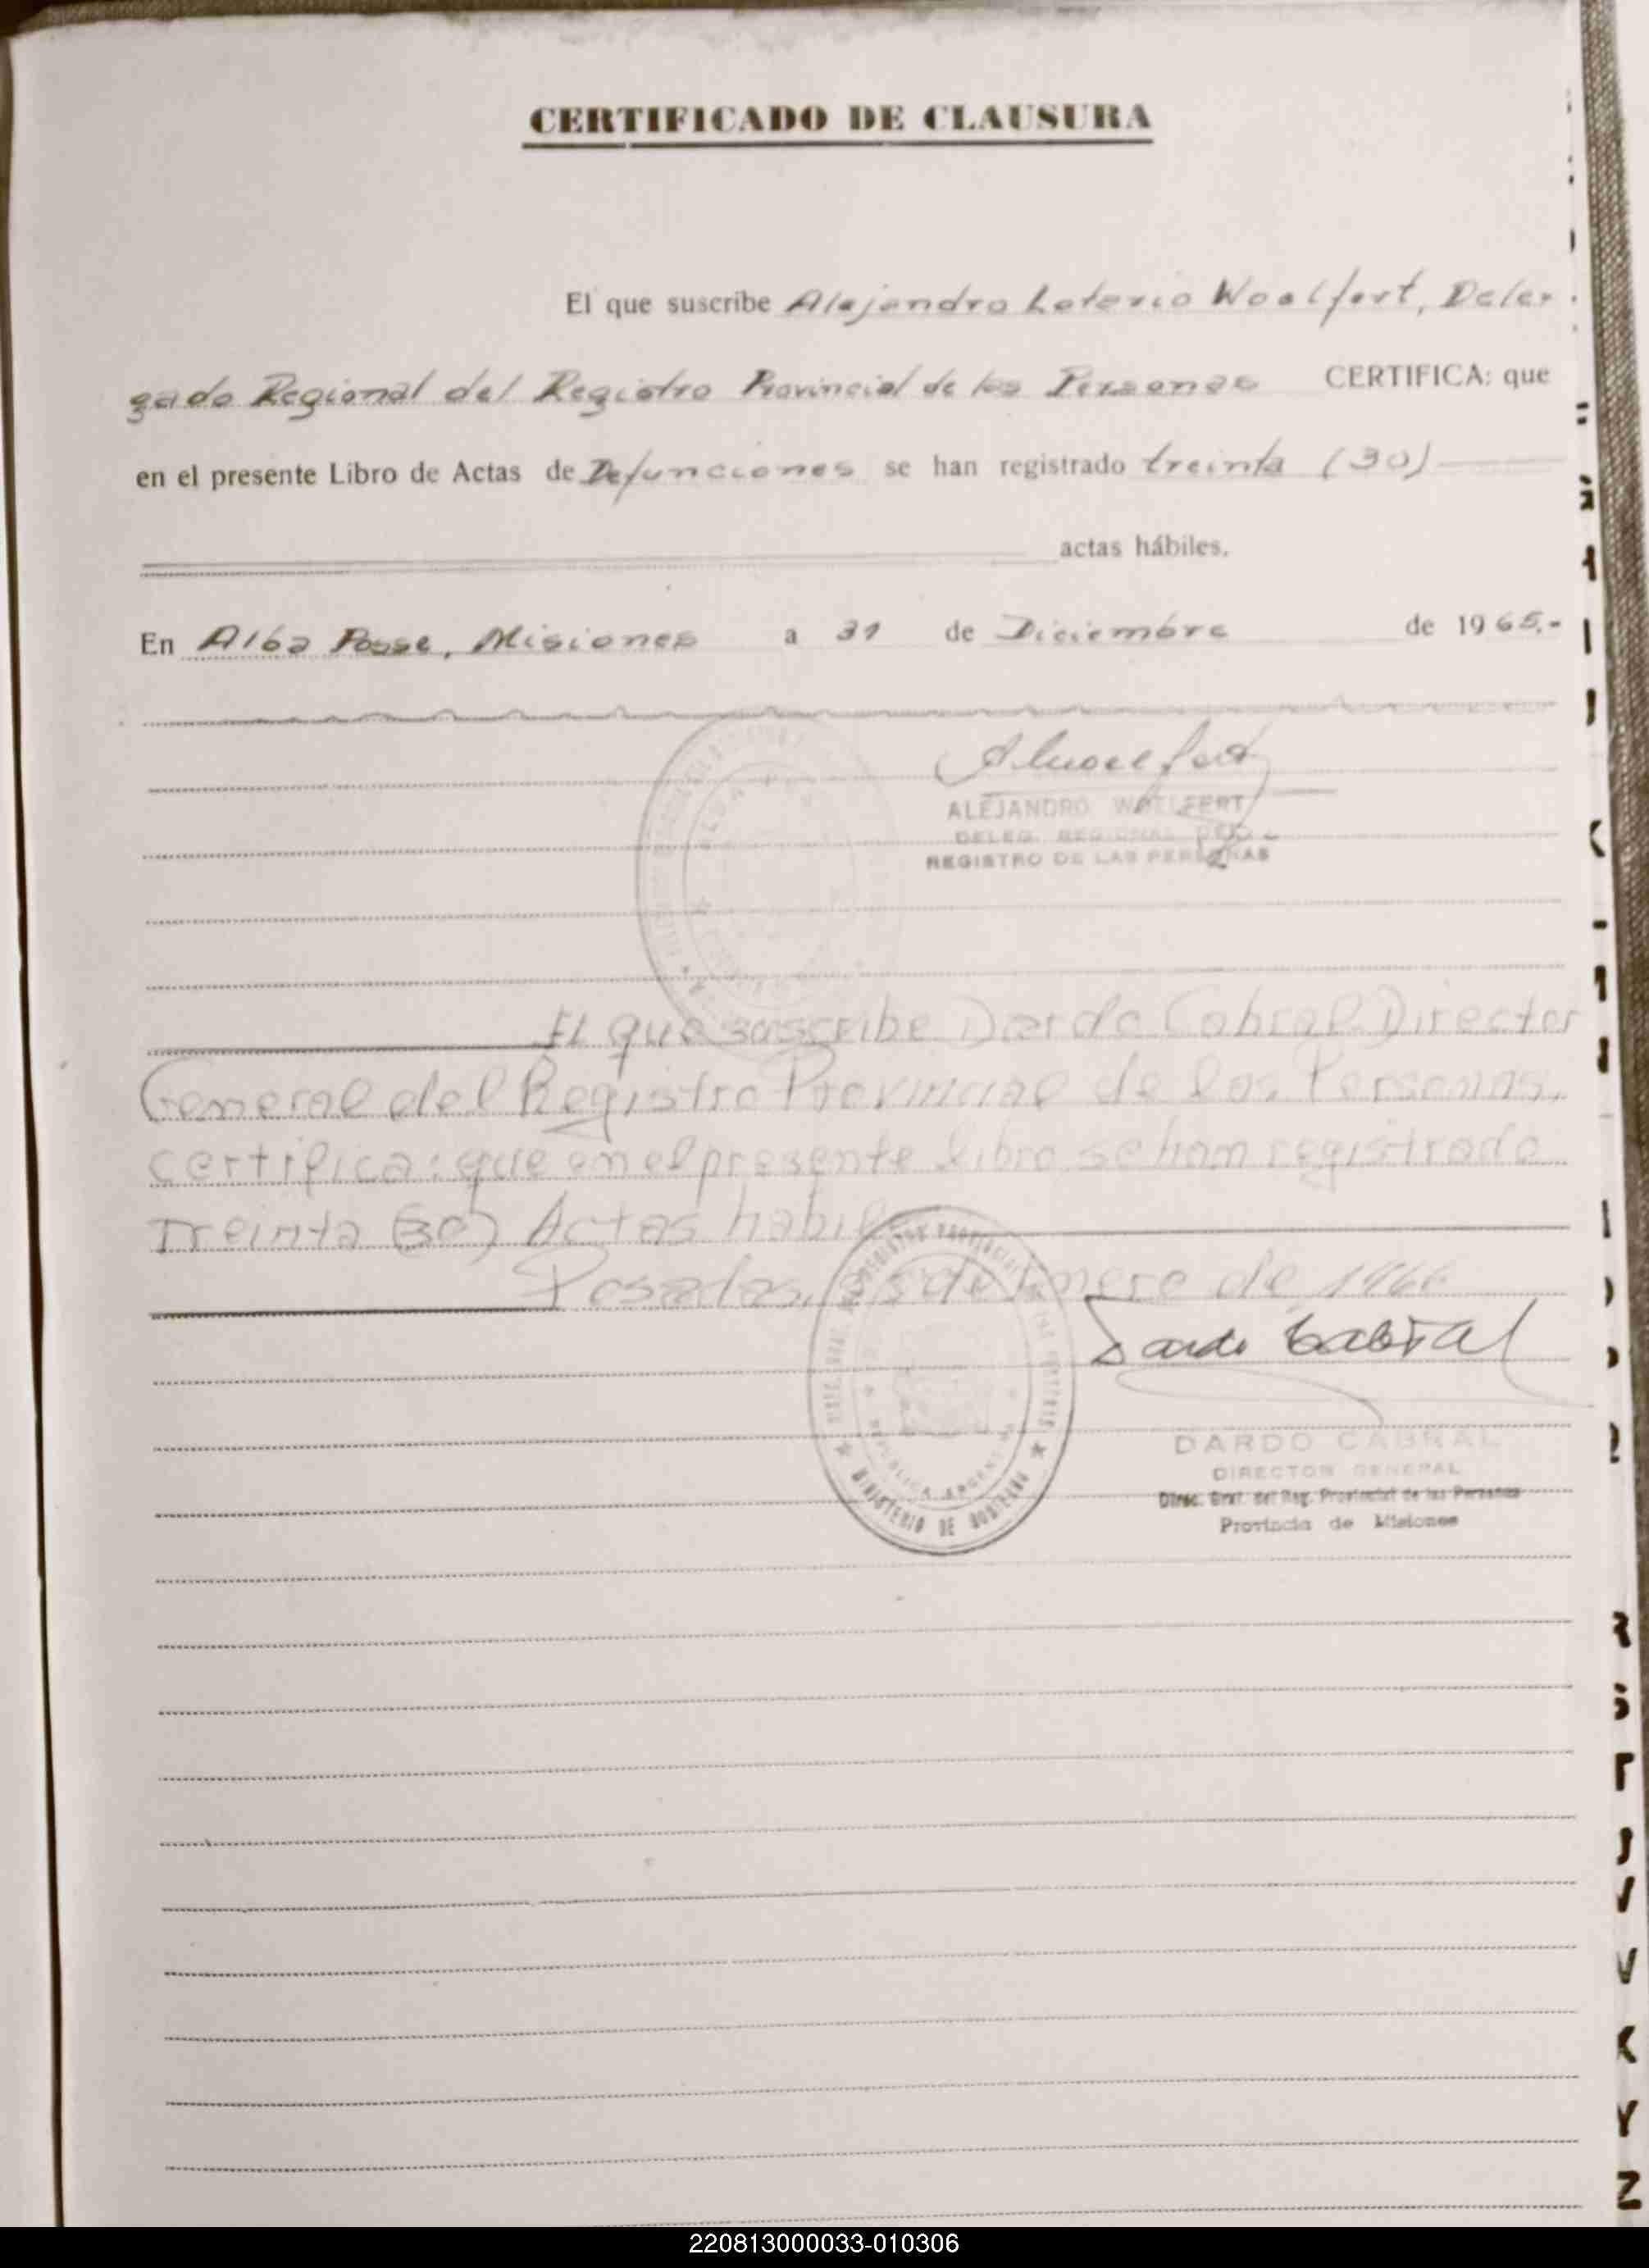 CERTIFICADO DE CLAUSURA
El que suscribe Alejandro Woelfert, Dele-
gado Regional del Registro Provincial de las Personas CERTIFICA: que
en el presente Libro de Actas de Defunciones se han registrado treinta (30)
actas hábiles.
En Alba Posse, Misiones a 31 de Diciembre de 1965.-
ALEJANDRO WOELFERT
DELEG. REGIONAL DEL
REGISTRO DE LAS PERSONAS
El que suscribe Dardo Cabral Director
General del Registro Provincial de las Personas,
certifica: que en el presente libro se han registrado
Treinta (30) Actas habiles
Posadas, de Enero de 1966
Dardo Cabral
DARDO CABRAL
DIRECTOR GENERAL
Direc. Gral. del Reg. Provincial de las Personas
Provincia de Misiones
REPUBLICA ARGENTINA
MINISTERIO DE GOBIERNO
V
K
Y
Z
220813000033-010306